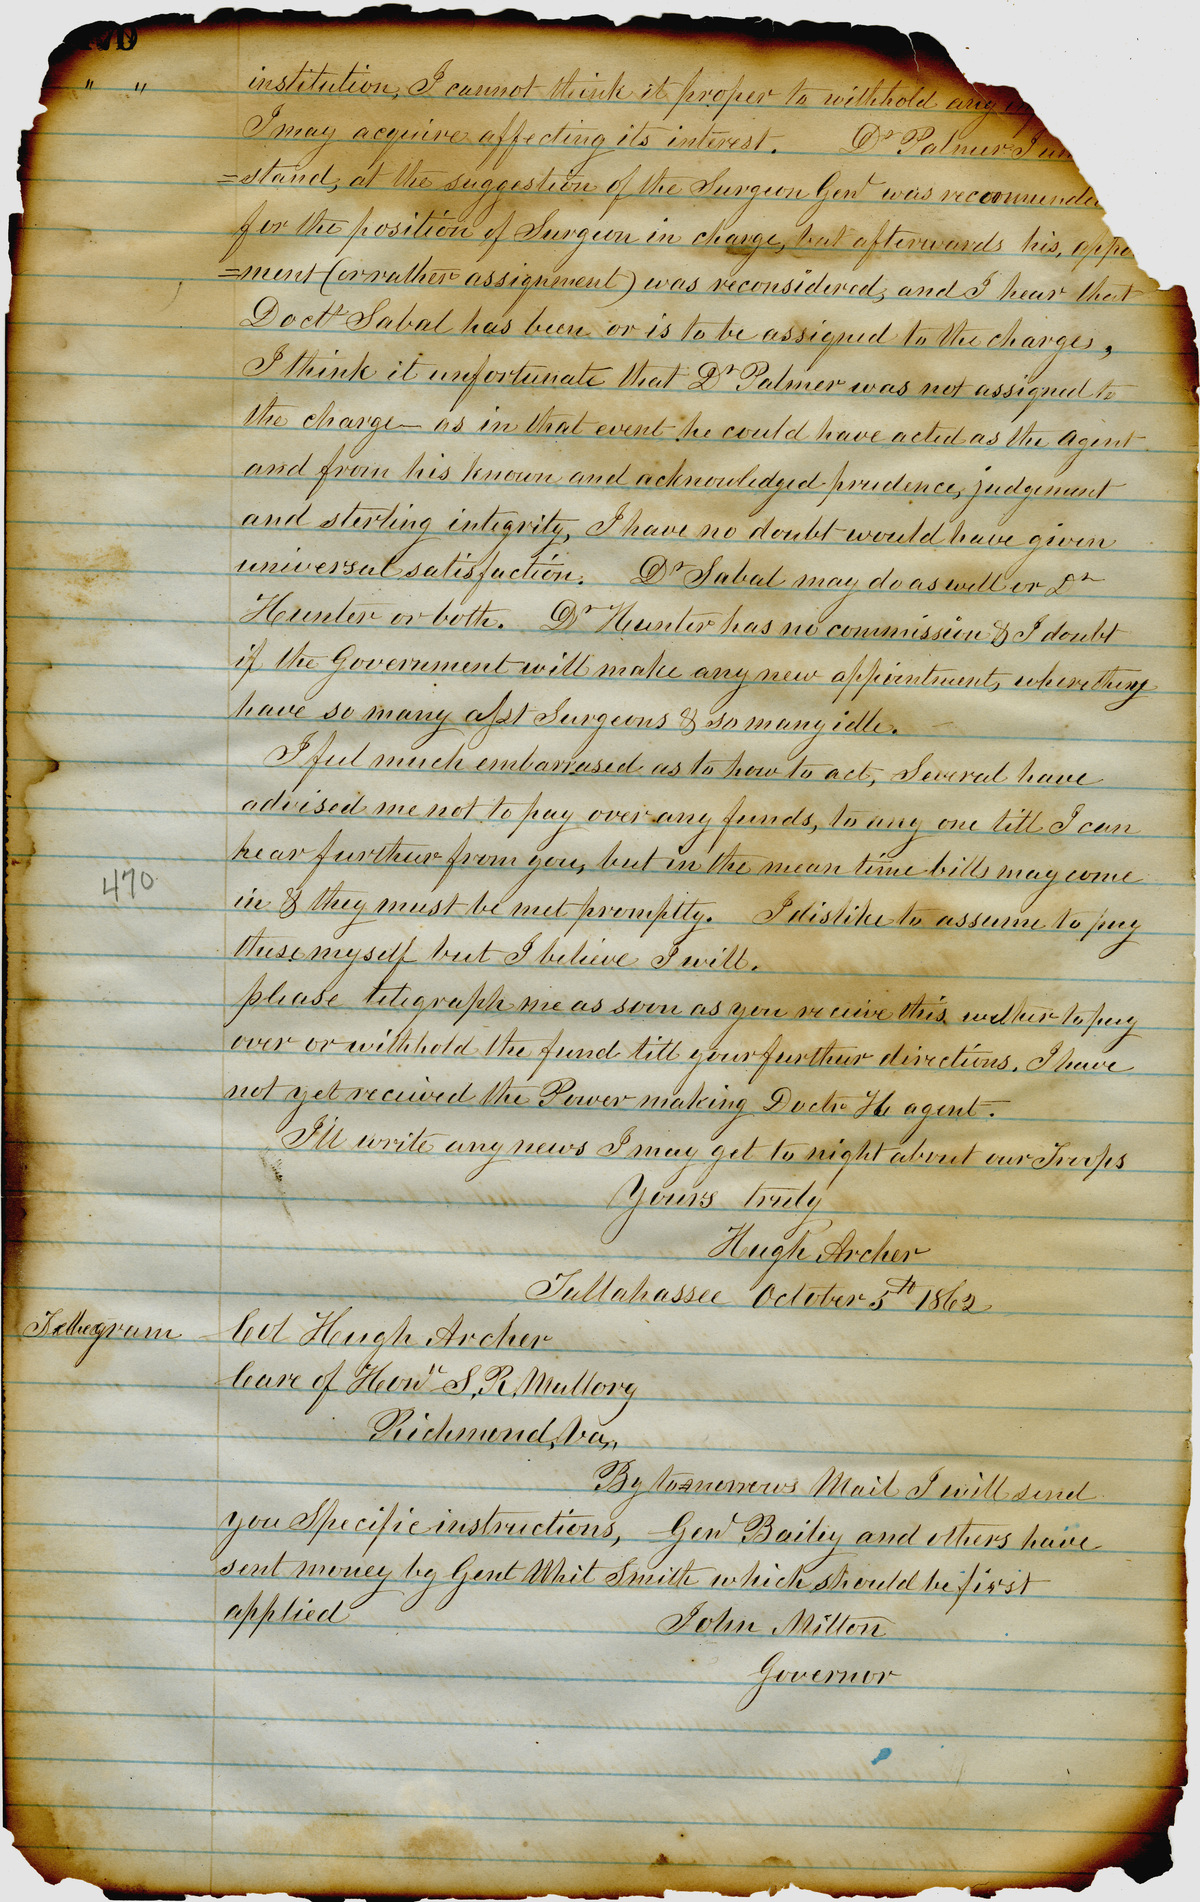 " "
institution, I cannot think it proper to withhold any
I may acquire affecting its interest. Dr Palmer I un
=stand, at the suggestion of the Surgeon Genl was recommende
for the position of Surgeon in charge, but afterwards his, appo
=ment (or rather assignment) was reconsidered, and I hear that
Doctr Sabal has been or is to be assigned to the charge,
I think it unfortunate that Dr Palmer was not assigned to
the charge – as in that event he could have acted as the agent
and from his known and acknowledged prudence, judgement
and sterling integrity, I have no doubt would have given
universal satisfaction. Dr Sabal may do as well or Dr
Hunter or both. Dr Hunter has no commission & I doubt
if the Government will make any new appointment, where they
have so many asst Surgeons & so many idle.
I feel much embarrased as to how to act, Several have
advised me not to pay over any funds, to any one till I can
hear further from you, but in the mean time bills may come
470
in & they must be met promptly. I dislike to assume to pay
these myself but I believe I will.
please telegraph me as soon as you receive this wether to pay
over or withhold the fund till your further directions. I have
not yet received the Power making Doctr H agent.
I'll write any news I may get to night about our Troops
Yours truly
Hugh Archer
Tallahassee October 5th 1862
Tethegram Col Hugh Archer
Care of Honl S, R, Mallory
Richmond, Va,,
By tomorrows Mail I will send
you Specific instructions, Genl Bailey and others have
sent money by Gent Whit Smith which should be first
applied
John Milton
Governor